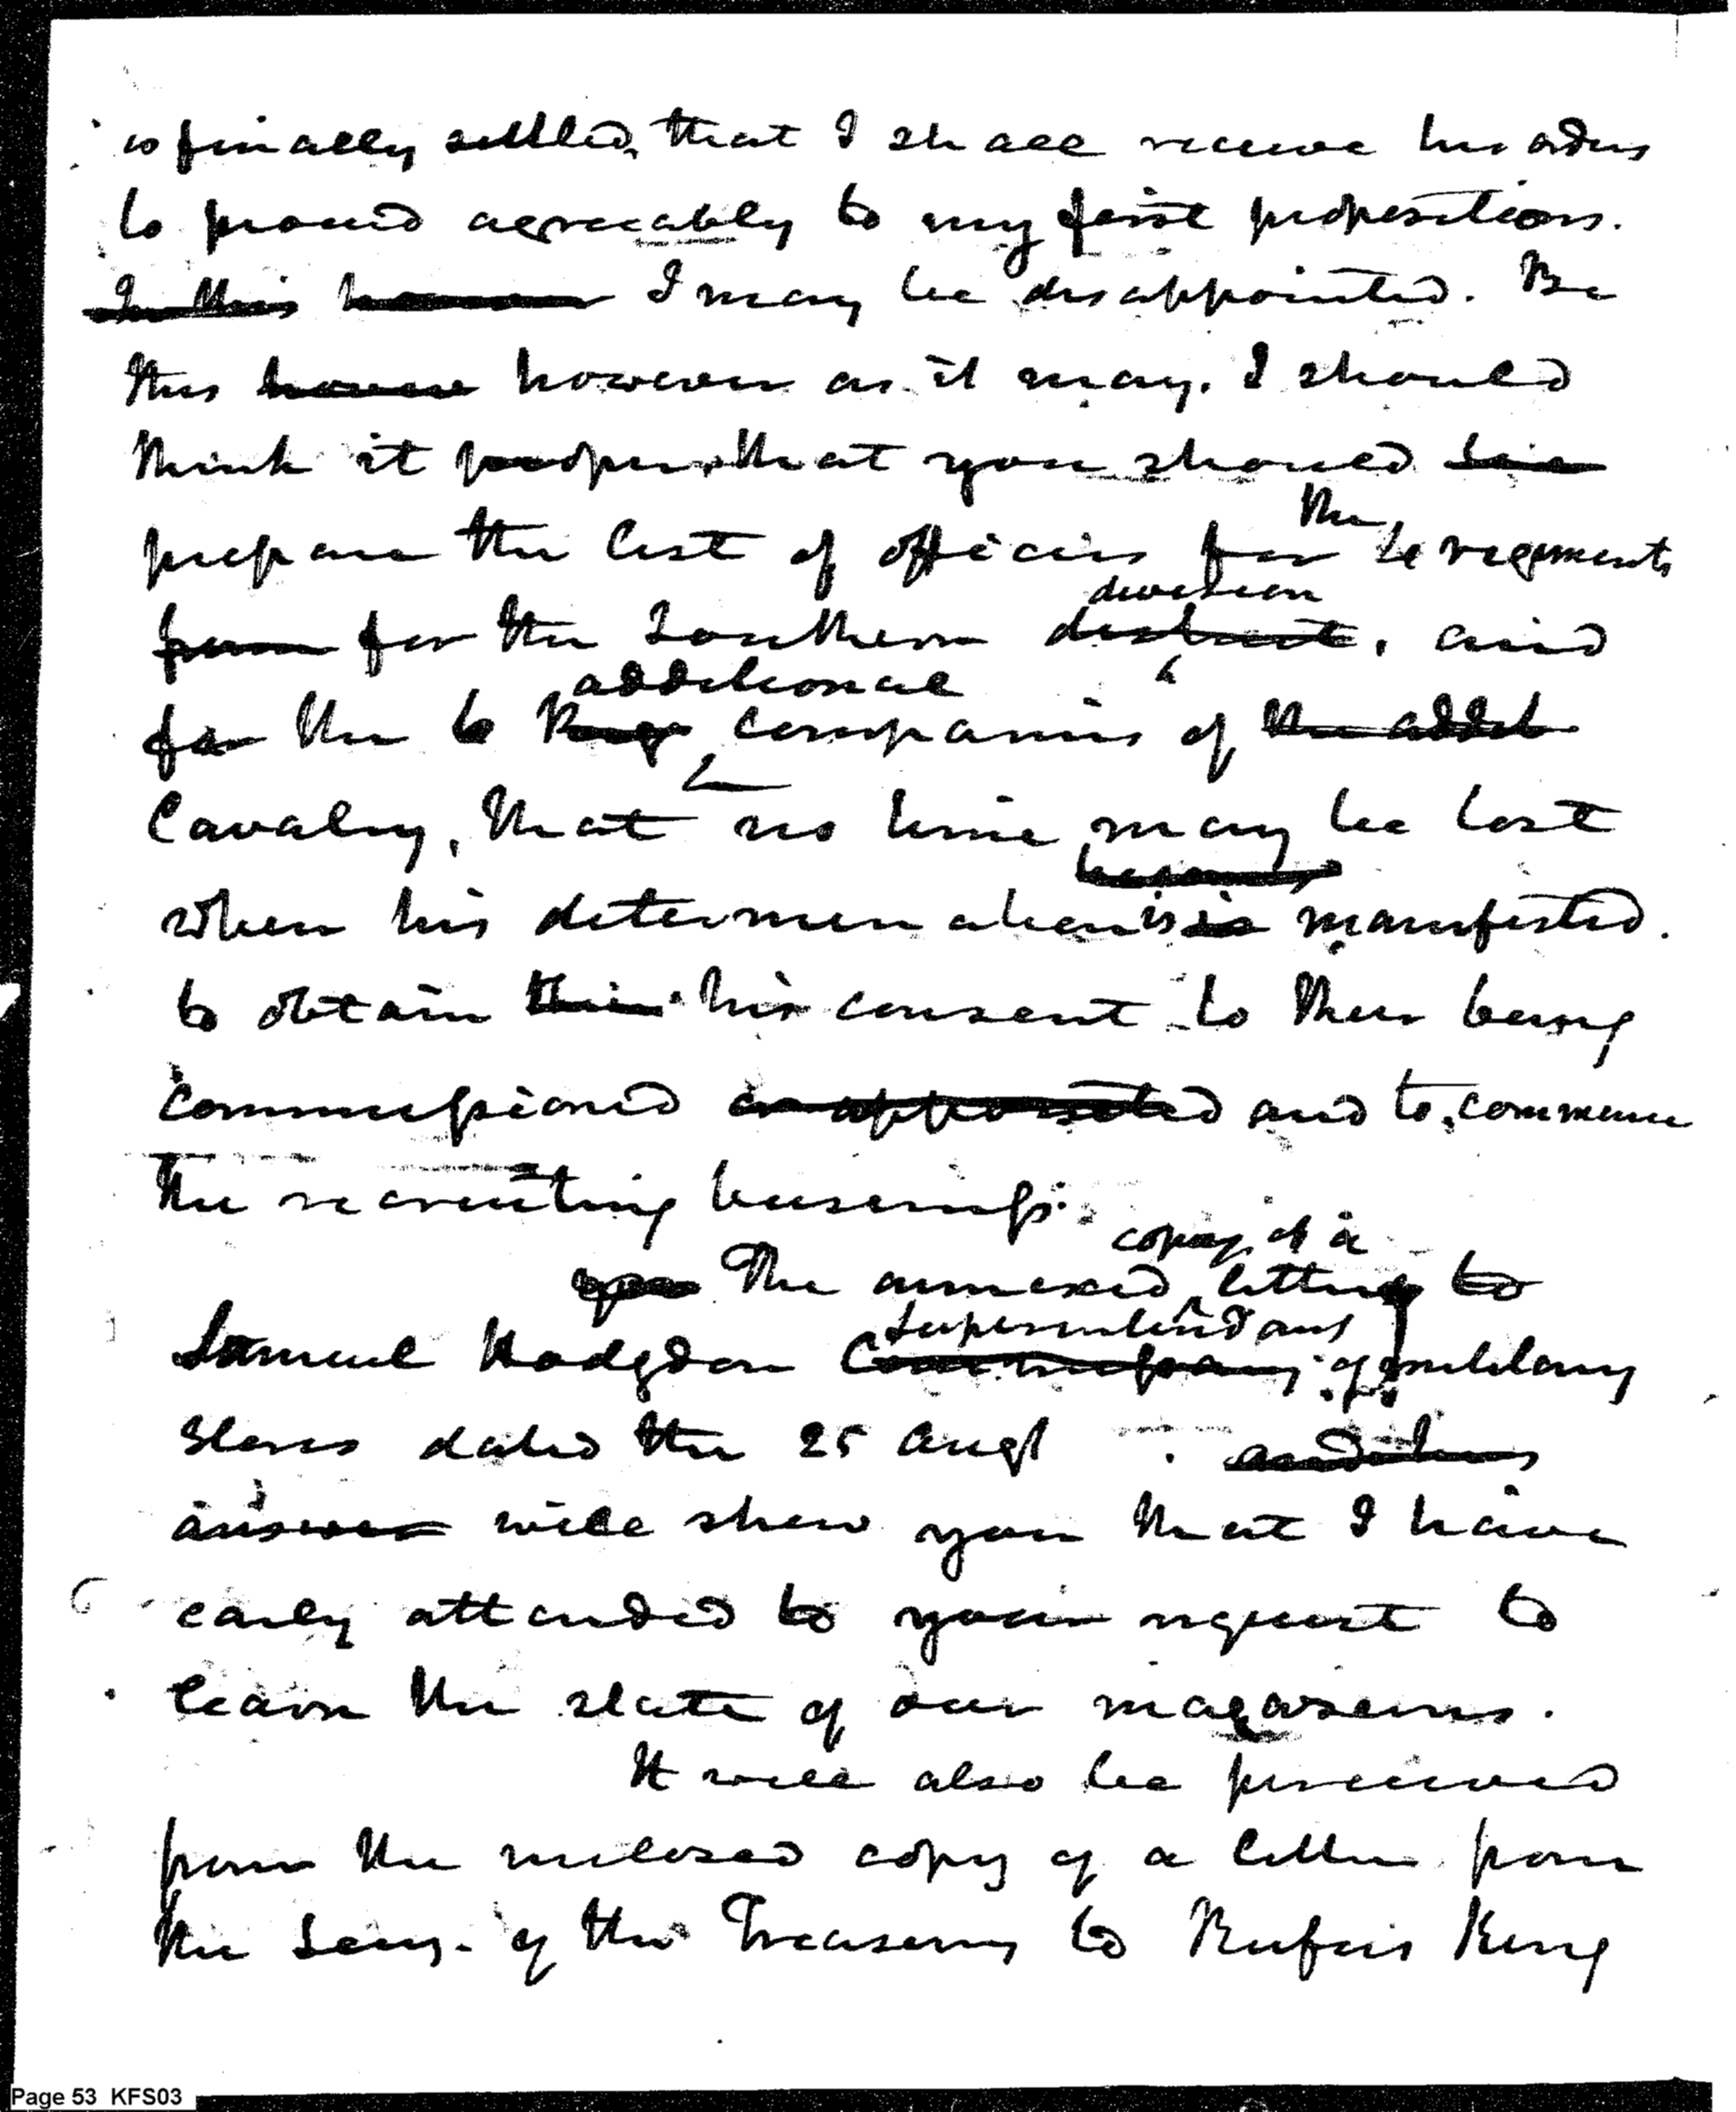 is finally settled, that I shall receive his orders
to proceed agreeably to my first propositions.
In this however I may be disappointed. Be
this however as it may. I should
think it proper, that you should
the
prepare the list of officers for 4 regiments
division
from for the Southern district, and
additional
for the 6 companies of the addit
Cavalry, that no time may be lost
when his determination is is manifested.
to obtain their his consent to their being
commissioned or appointed and to commence
the recruiting business.
copy of a
The annexed letter to
Superintendant
Samuel Hodgdon of military
stores dated the 25 Augt and his
answer will shew you that I have
early attended to your request to
learn the state of our magazines.
It will also be perceived
from the inclosed copy of a letter from
the Secy. of the Treasury to Rufus King
Page 53 KFS03